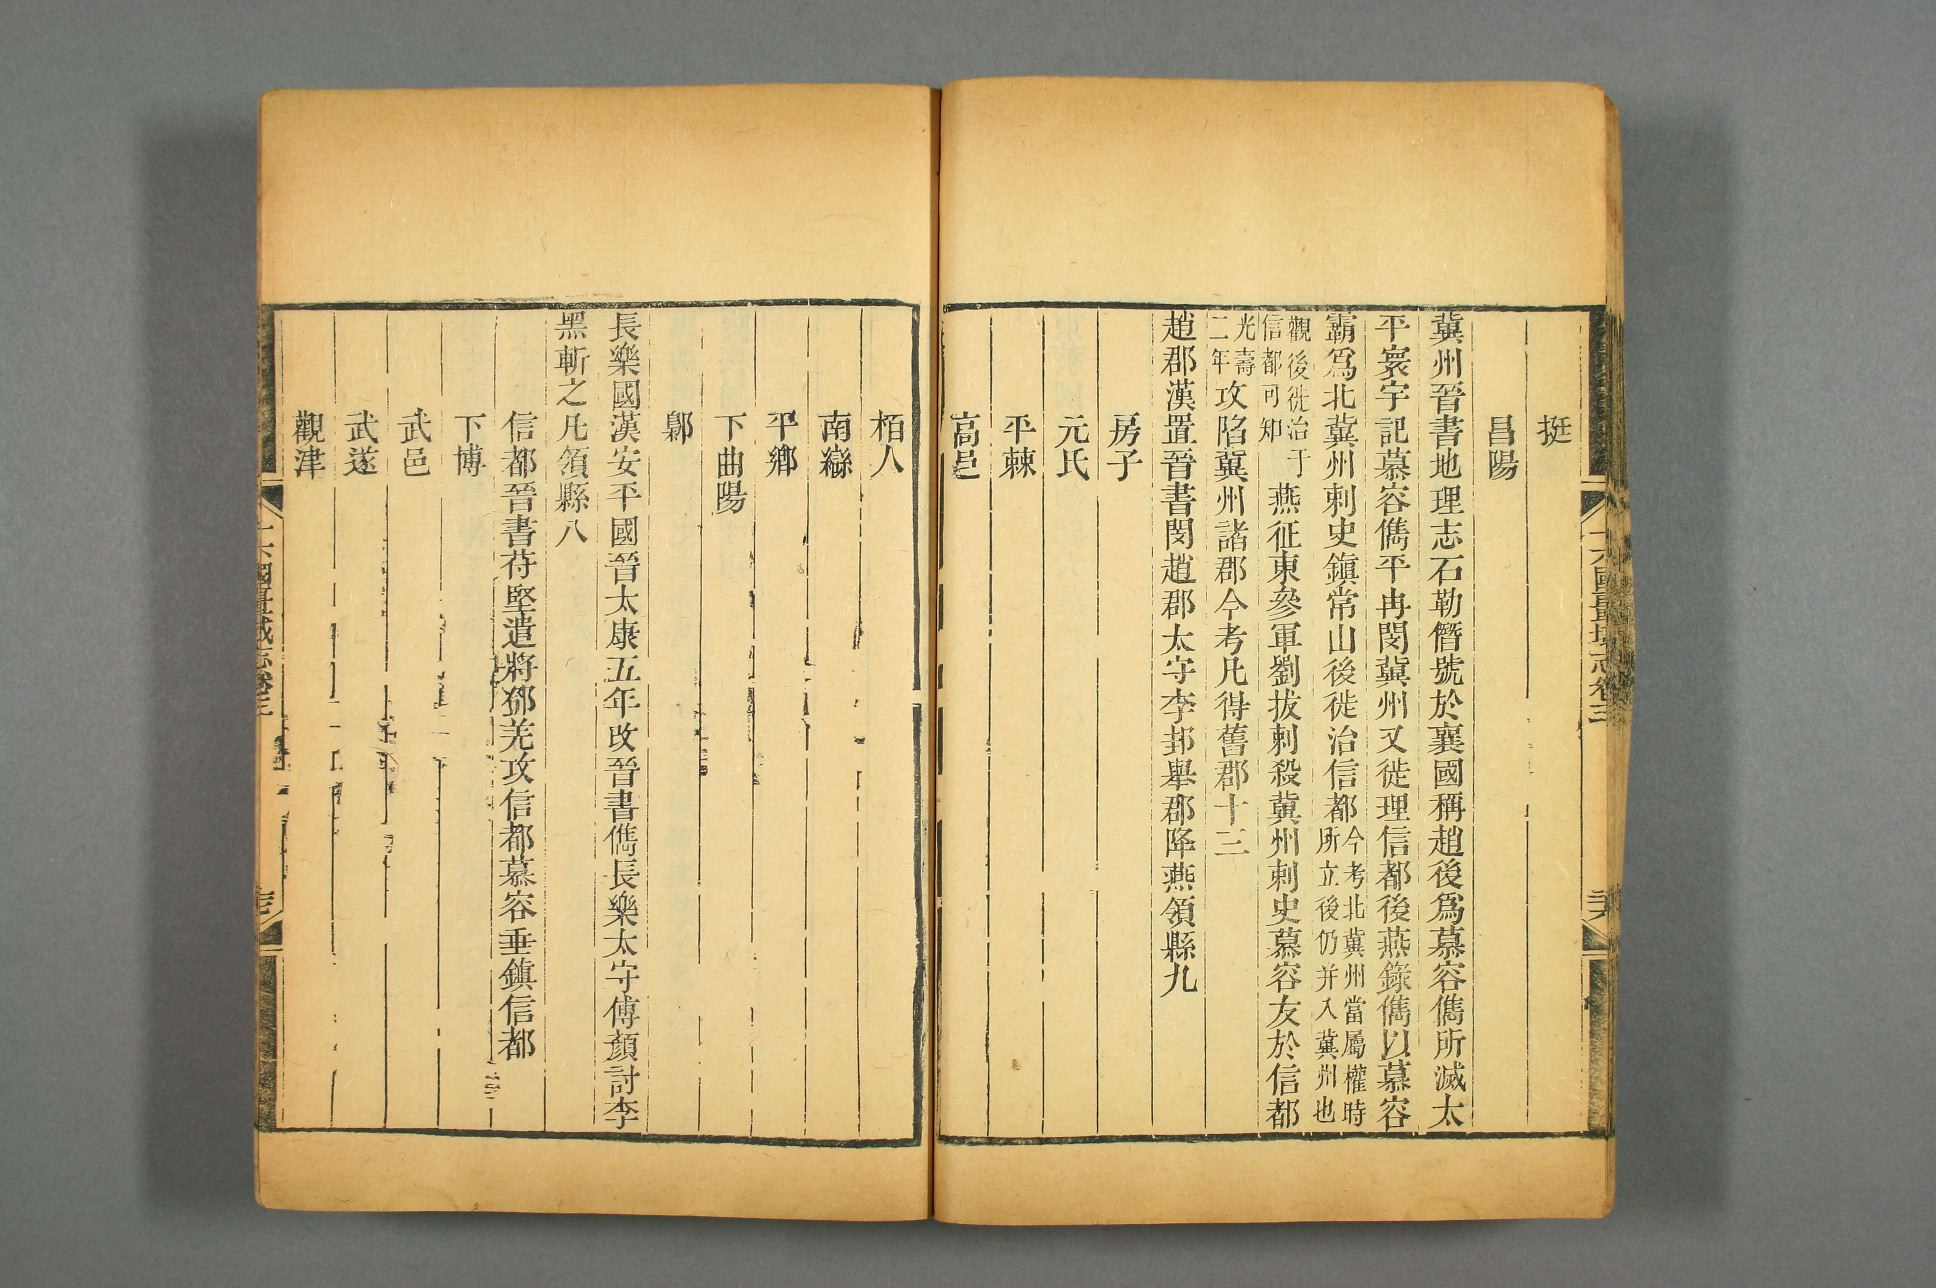 挺
昌陽
冀州晉書地理志石勒僭號於襄國稱趙後爲慕容儁所滅太
平寰宇記慕容儁平冉閔冀州又徙理信都後燕錄儁以慕容
霸爲北冀州刺史鎮常山後徙治信都今考北冀州當屬權時所立後仍并入冀州也
觀後徙治于信都可知燕征東參軍劉拔刺殺冀州刺史慕容友於信都
光壽二年攻陷冀州諸郡今考凡得舊郡十三
趙郡漢置晉書閔趙郡太守李邽舉郡降燕領縣九
房子
元氏
平棘
高邑
柏人
南䜌
平鄉
下曲陽
鄡
長樂國漢安平國晉太康五年改晉書儁長樂太守傅顏討李
黑斬之凡領縣八
信都晉書苻堅遣將鄧羌攻信都慕容垂鎮信都
下博
武邑
武遂
觀津
十六國疆域志卷三